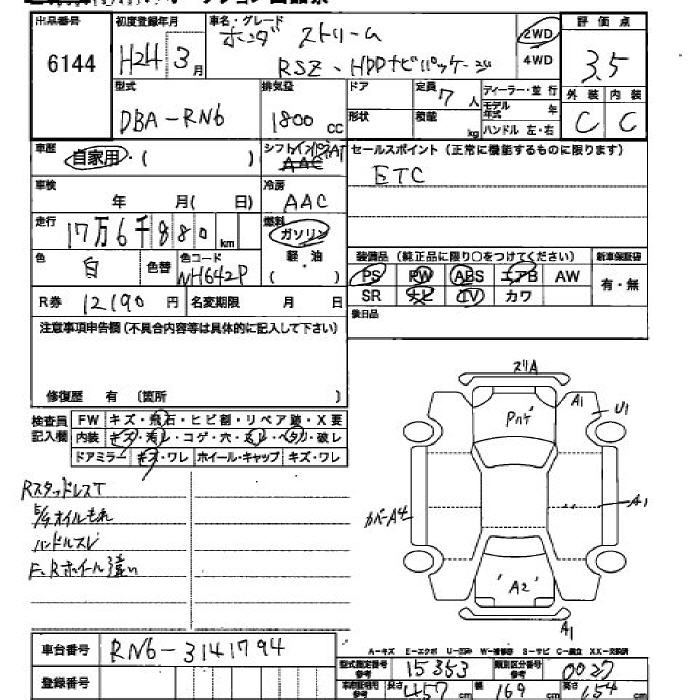 出品番号
6144
初度登録年月
H24 3月
車名・グレード
ホンダ ストリーム
RSZ・HDDナビパッケージ
2WD
4WD
評価点
3.5
外装 内装
C C
型式
DBA-RN6
排気量
1800 cc
ドア
形状
定員 7人
積載 kg
ディーラー・並行
モデル年式 年
ハンドル 左・右
車歴
自家用・( )
シフト
AAC
冷房
AAC
セールスポイント (正常に機能するものに限ります)
ETC
車検
年 月( 日)
走行
17万6千880 km
燃料
ガソリン
軽・油
( )
色
白
色替
色コード
NH642P
装備品 (純正品に限り○をつけてください)
新車保証書
PS PW ABS エアB AW
SR ナビ TV カワ
有・無
後日品
R券 12190 円
名変期限 月 日
注意事項申告欄 (不具合内容等は具体的に記入して下さい)
修復歴 有 〔箇所 〕
検査員記入欄
FW キズ・飛石・ヒビ割・リペア跡・X要
内装 キズ・汚レ・コゲ・穴・スレ・ヘタリ・破レ
ドアミラー キズ・ワレ ホイール・キャップ キズ・ワレ
RスタッドレスT
E/Gオイルもれ
ハンドルスレ
F、Rホイール違い
スリA
Pハゲ
A1
U1
カバーA4
A1
"A2"
A1
A-キズ E-エクボ U-凹み W-補修跡 S-サビ C-腐食 XX-交換済
車台番号
RN6-3141794
登録番号
型式指定番号 参考
15353
類別区分番号 参考
0027
長さ 457 cm
幅 169 cm
高さ 154 cm